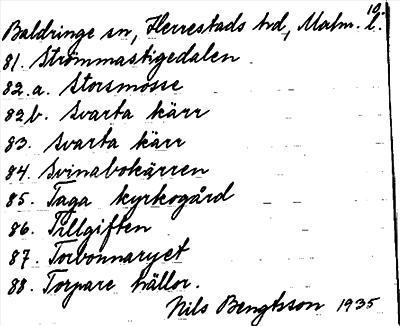 19.
Baldringe sn, Herrestads hd, Malm. l.
81. Strömmastigedalen.
82.a. Storsmosse
82b. Svarta kärr
83. Svarta kärr
84. Svinabokärren
85. Taga kyrkogård
86. Tillgiften
87. Torbonnaryet
88. Torpare hällor.
Nils Bengtsson 1935